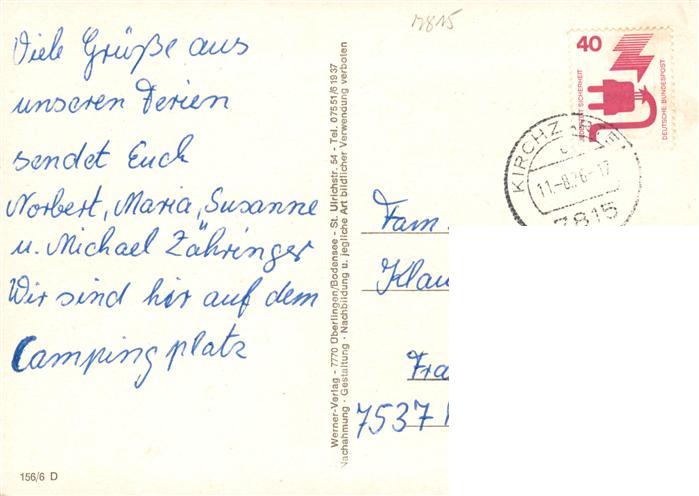 Viele Grüße aus
unseren Ferien
sendet Euch
Norbert, Maria, Susanne
u. Michael Zähringer
Wir sind hir auf dem
Campingplatz
156/6 D
Werner-Verlag - 7770 Überlingen/Bodensee - St. Ulrichstr. 54 - Tel. 07551/61937
Nachahmung · Gestaltung · Nachbildung u. jegliche Art bildlicher Verwendung verboten
7815
40
JEDERZEIT SICHERHEIT
DEUTSCHE BUNDESPOST
KIRCHZ
11.-8.76-17
7815
Fam
Klau
Fra
7537